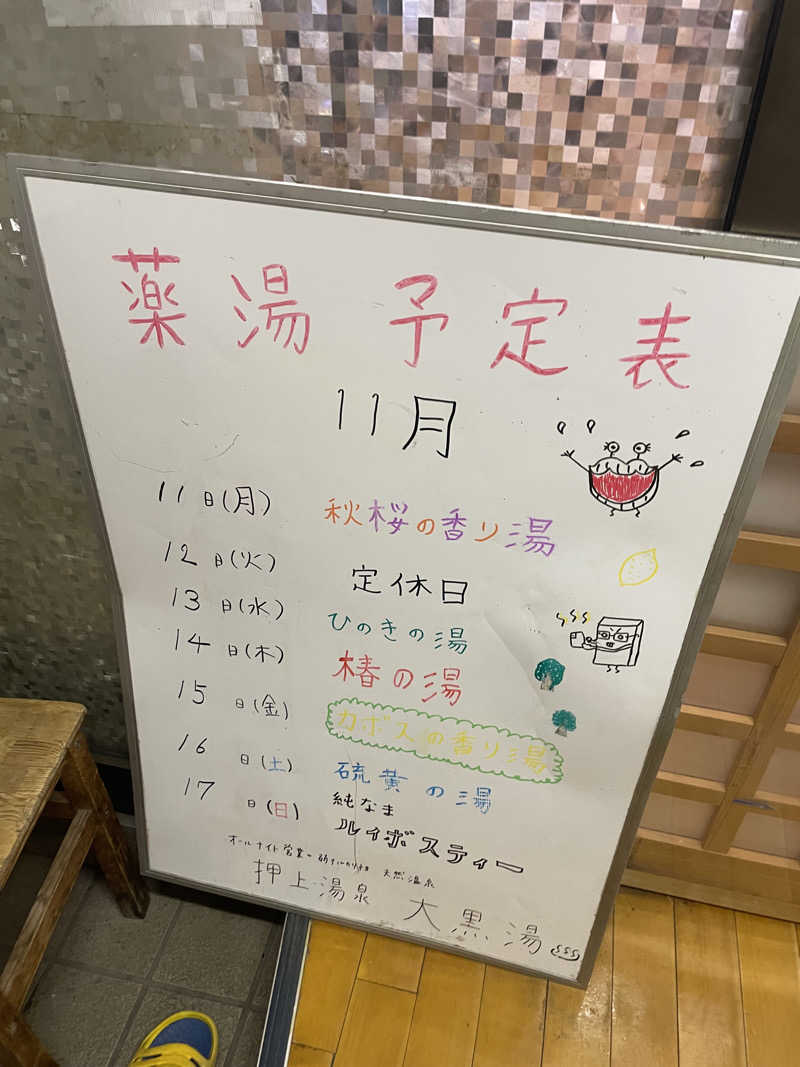 薬湯予定表
11月
11日(月) 秋桜の香り湯
12日(火) 定休日
13日(水) ひのきの湯
14日(木) 椿の湯
15日(金) カボスの香り湯
16日(土) 硫黄の湯
17日(日) 純なま ルイボスティー
オールナイト営業 天然温泉
押上温泉 大黒湯